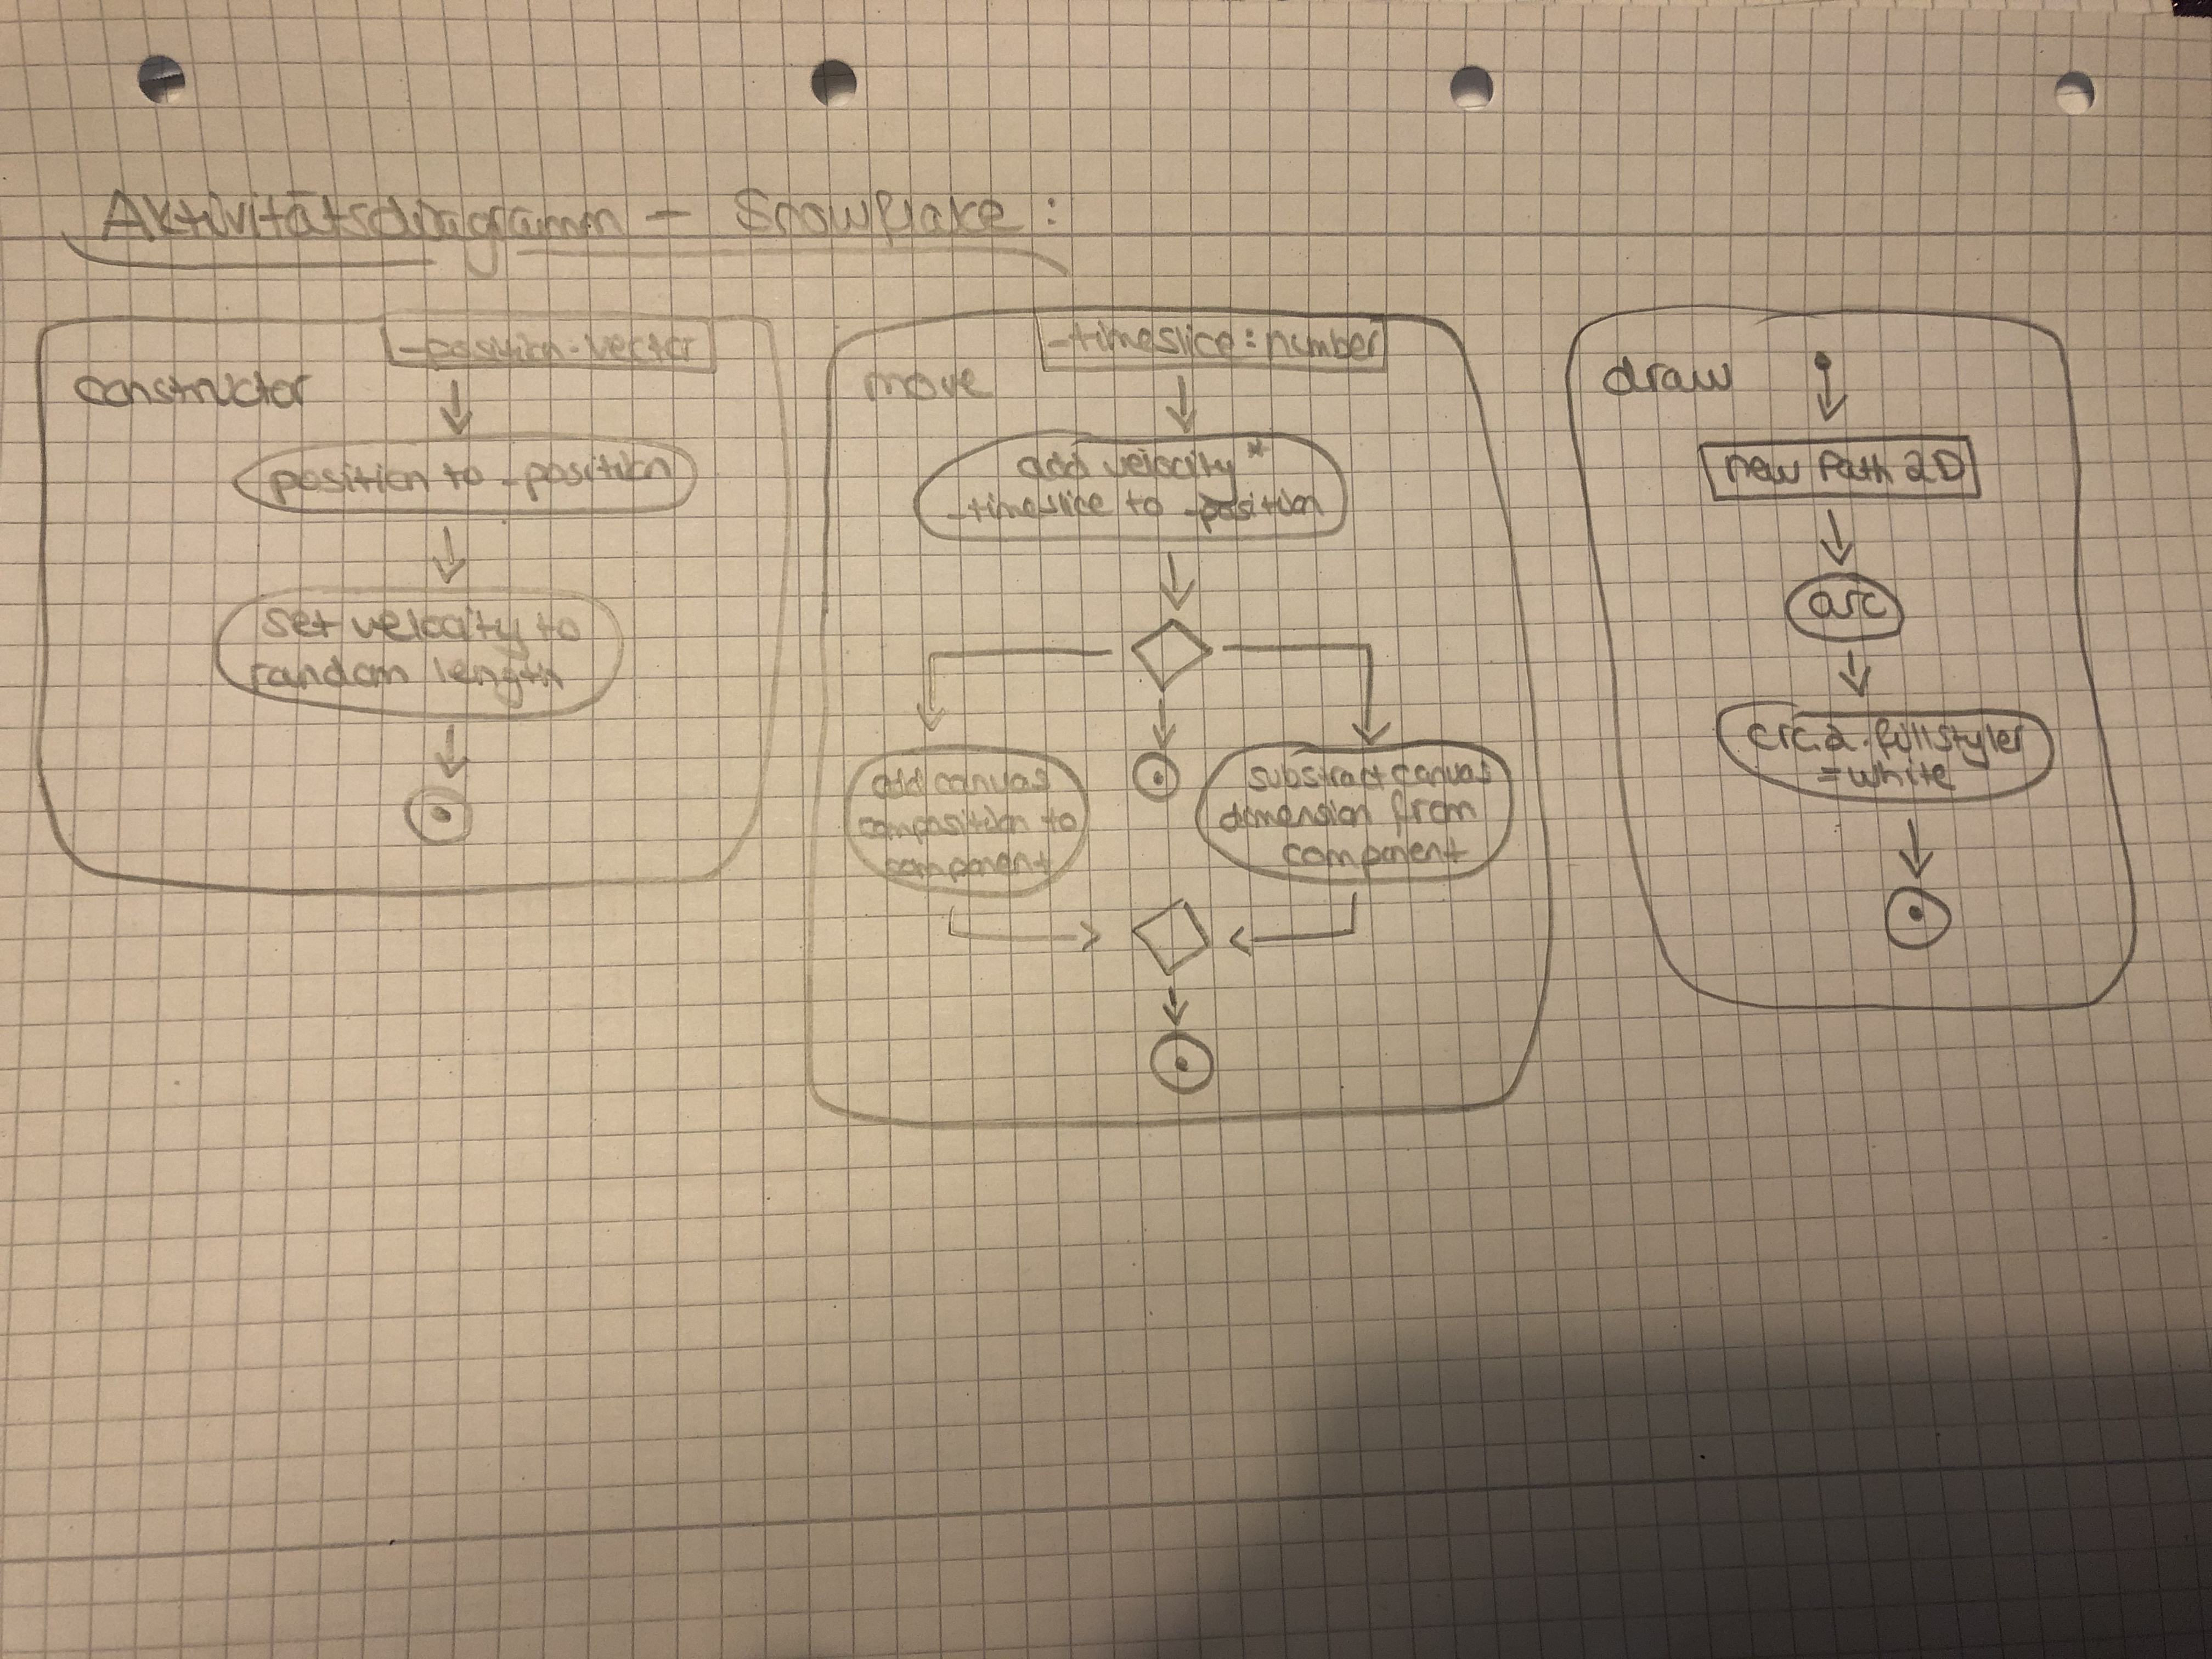 Aktivitätsdiagramm - Snowflake:
constructor
_position: vector
position to _position
set velocity to
random length
move
_timeslice: number
add velocity *
_timeslice to _position
add canvas
composition to
component
substract canvas
dimension from
component
draw
new Path 2D
arc
crc2.fillstyler
= white